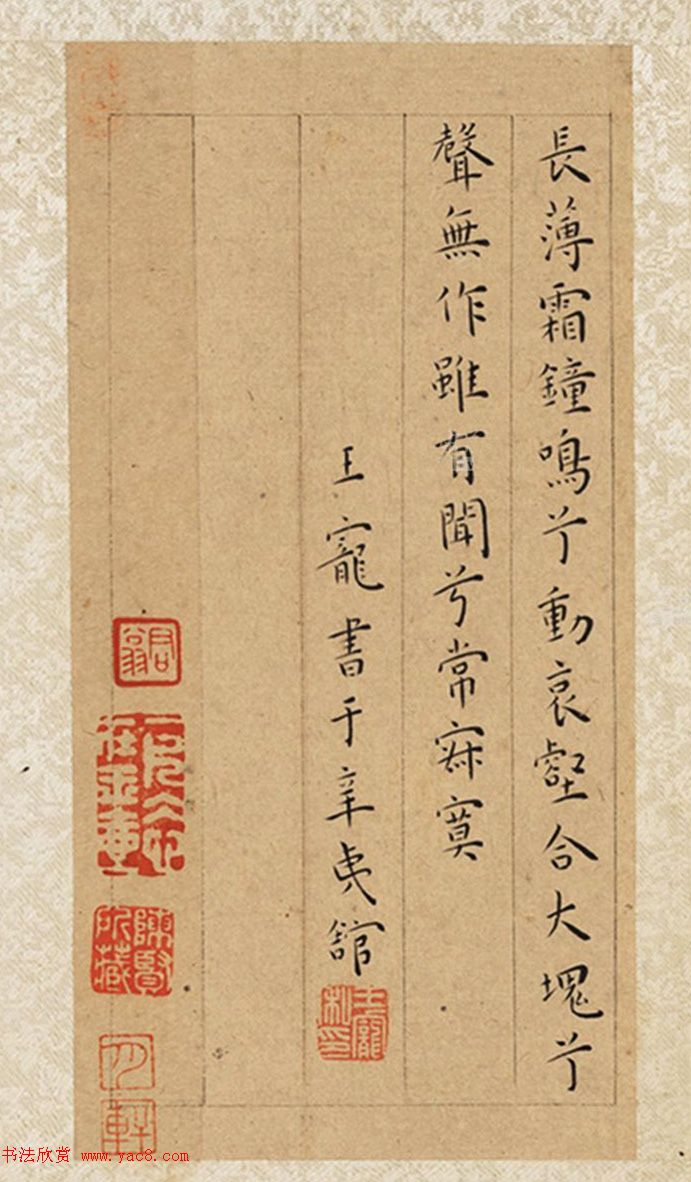 長薄霜鐘鳴兮動哀壑合大塊兮
聲無作雖有聞兮常寂寞
王寵書于辛夷館
王寵私印
陳賢所藏
书法欣赏 www.yac8.com